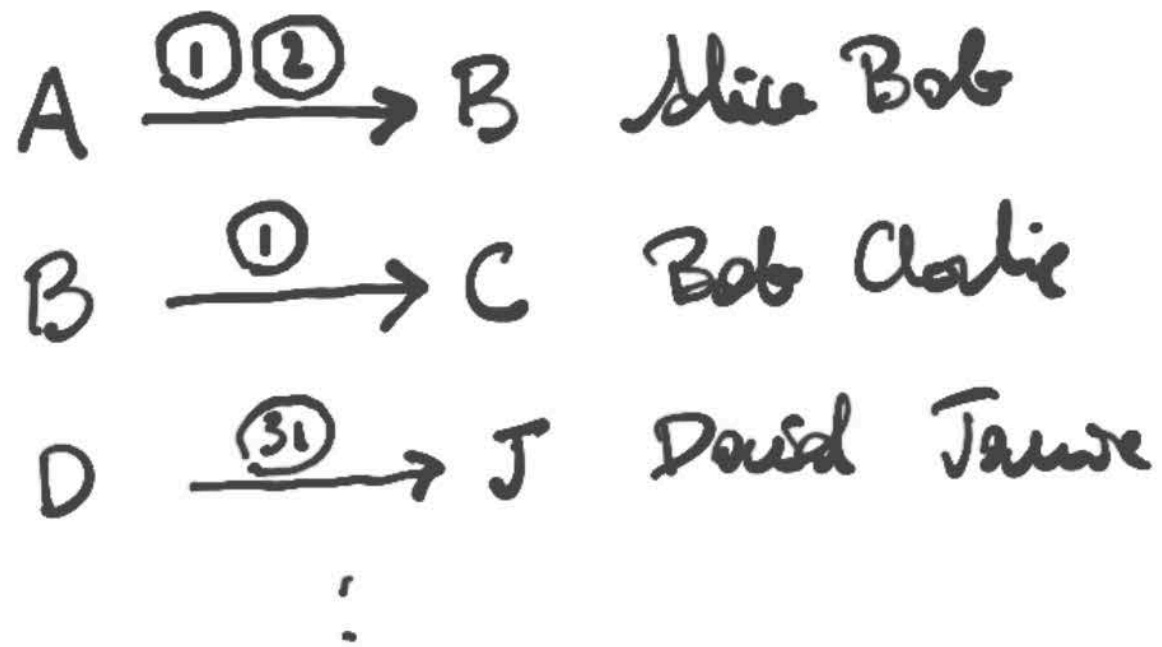 ① ②
A → B Alice Bob
①
B → C Bob Charlie
㉛
D → J David Jamie
⋮